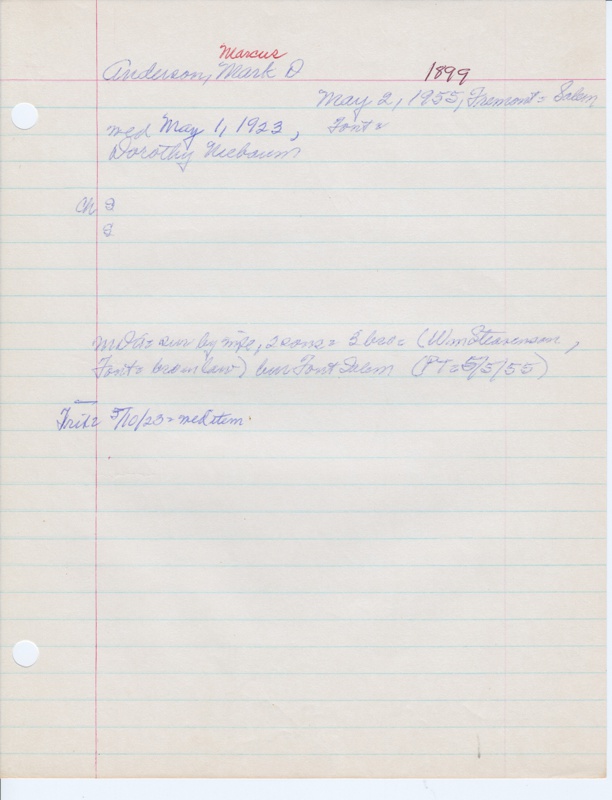 Marcus
Anderson, Mark D 1899
May 2, 1955, Fremont = Salem
wed May 1, 1923, Font =
Dorothy Niebaum
ch
MDA = sur by mpe, 2 sons = 3 bro = (Wm Stevenson,
Font = bro in law) bur Font Salem (PT = 5/5/55)
Trib = 5/10/23 = wed item.